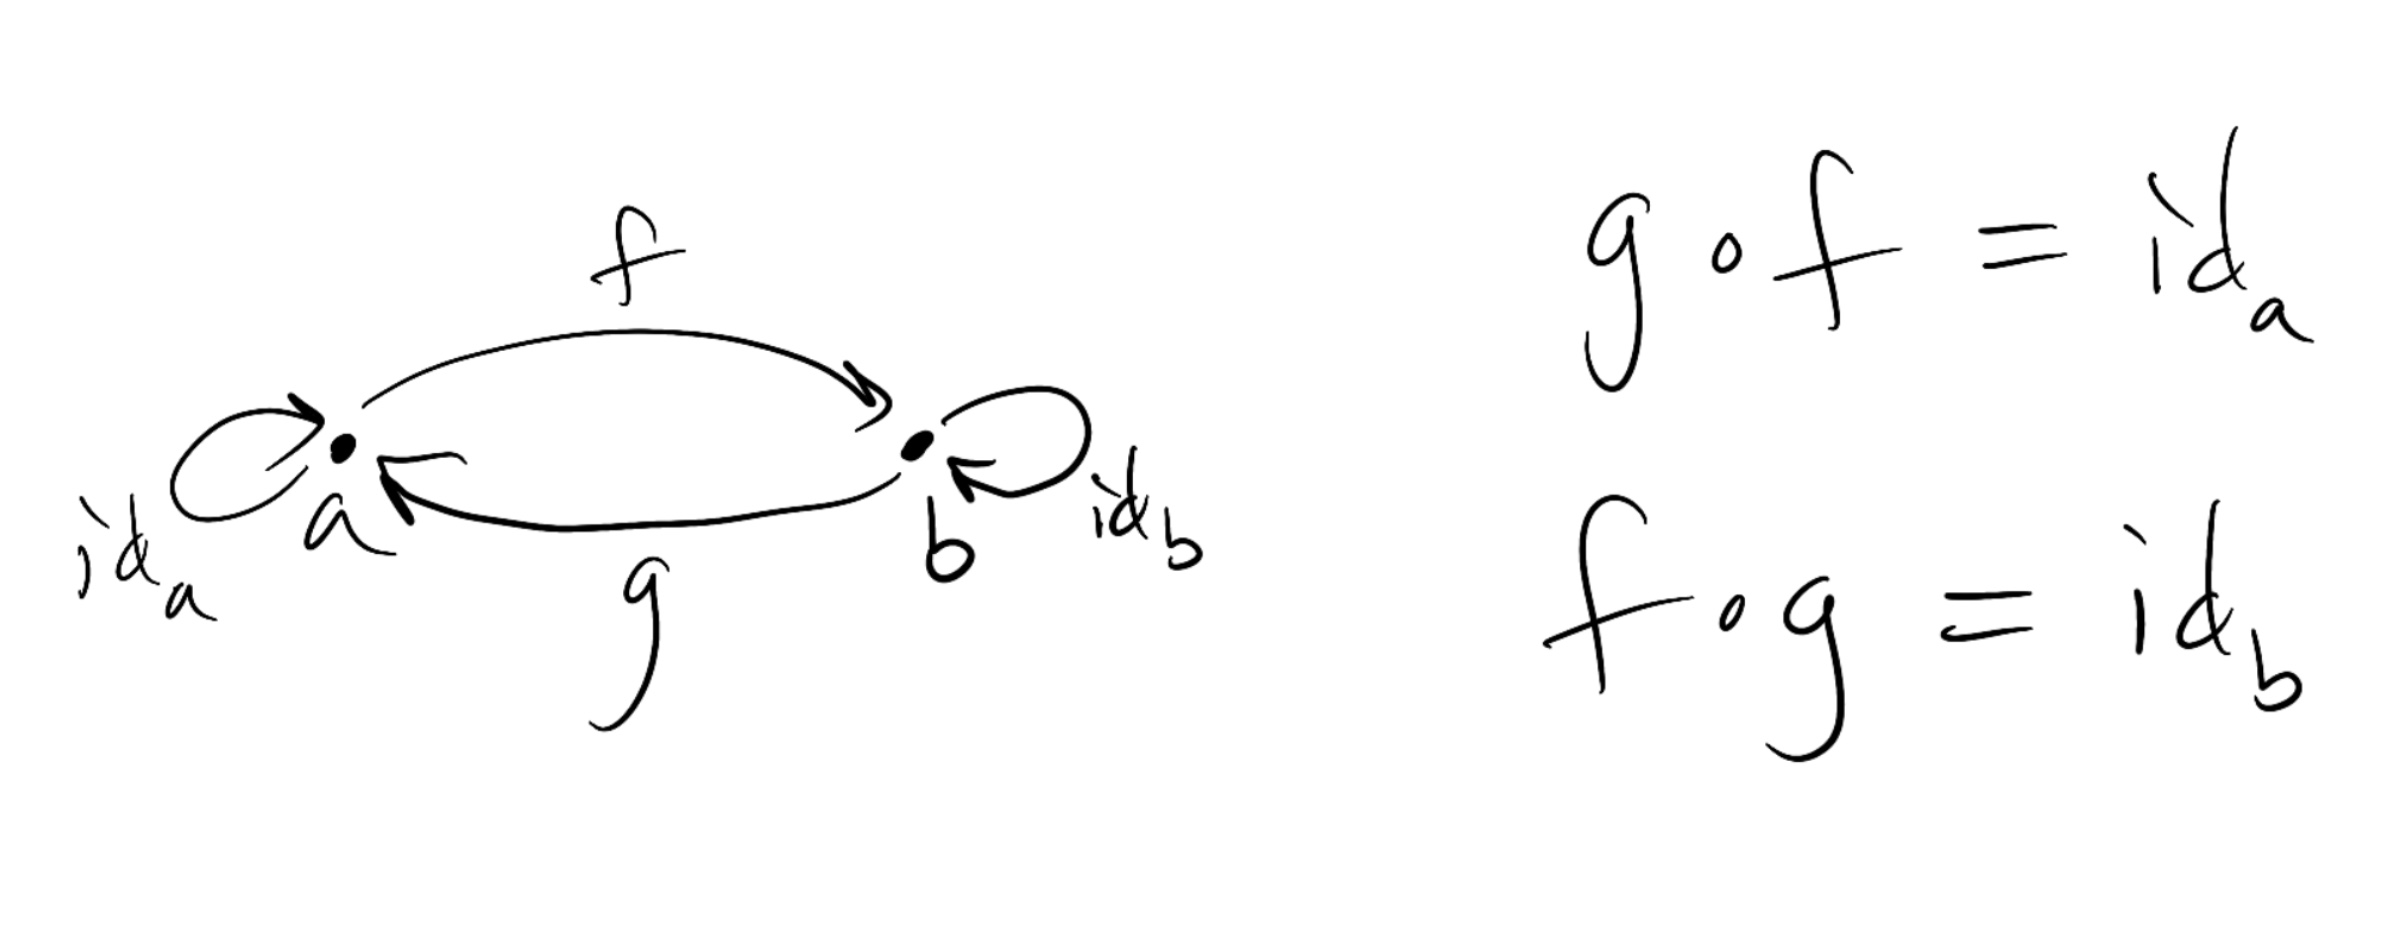 f
a
b
id_a
id_b
g
g ∘ f = id_a
f ∘ g = id_b